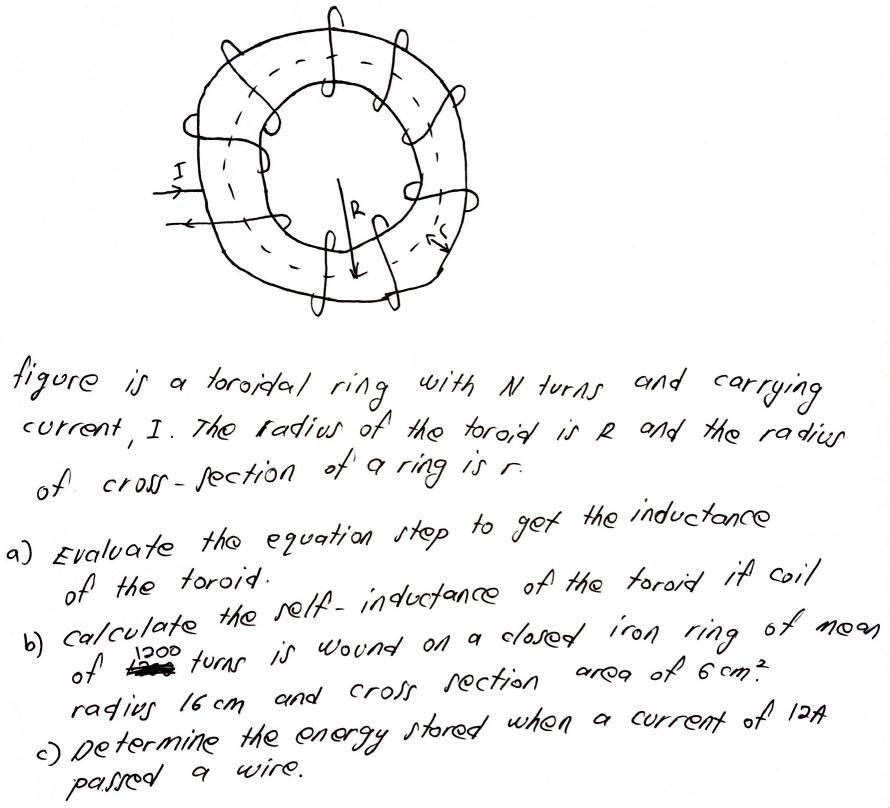 I
R
r
figure is a toroidal ring with N turns and carrying
current, I. The radius of the toroid is R and the radius
of cross-section of a ring is r.
a) Evaluate the equation step to get the inductance
of the toroid.
b) Calculate the self-inductance of the toroid if coil
of 1200 turns is wound on a closed iron ring of mean
radius 16 cm and cross section area of 6 cm².
c) Determine the energy stored when a current of 12A
passed a wire.